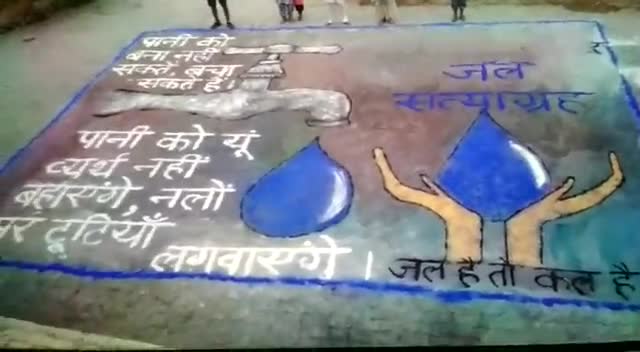 पानी को
बना नहीं
सकते, बचा
सकते है।
जल
सत्याग्रह
पानी को यूं
व्यर्थ नहीं
बहाएंगे, नलों
पर टूटियाँ
लगवाएंगे।
जल है तो कल है